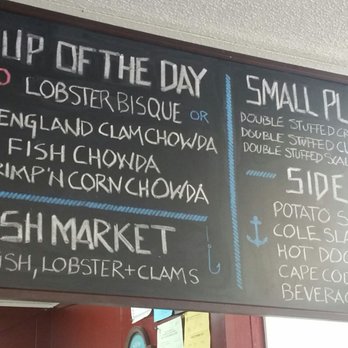 UP OF THE DAY
LOBSTER BISQUE OR
ENGLAND CLAM CHOWDA
FISH CHOWDA
RIMP 'N CORN CHOWDA
SH MARKET
ISH, LOBSTER + CLAMS
SMALL PL
DOUBLE STUFFED
DOUBLE STUFFED
DOUBLE STUFFED
SIDE
POTATO S
COLE SLA
HOT DOG
CAPE COD
BEVERAG